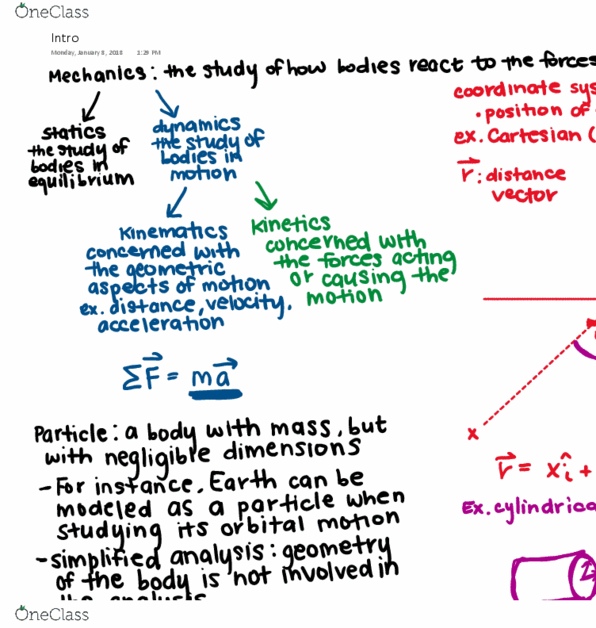 OneClass
Intro
Monday, January 8, 2018 2:29 PM
Mechanics: the study of how bodies react to the forces
statics
the study of
bodies in
equilibrium
dynamics
the study of
bodies in
motion
Kinematics
concerned with
the geometric
aspects of motion
ex. distance, velocity,
acceleration
kinetics
concerned with
the forces acting
or causing the
motion
ΣF⃗ = ma⃗
Particle: a body with mass, but
with negligible dimensions
- For instance, Earth can be
modeled as a particle when
studying its orbital motion
- simplified analysis: geometry
of the body is not involved in
the analysis
coordinate sys
• position of
ex. Cartesian (
r⃗: distance
vector
x
r⃗ = xî +
Ex. cylindrica
OneClass